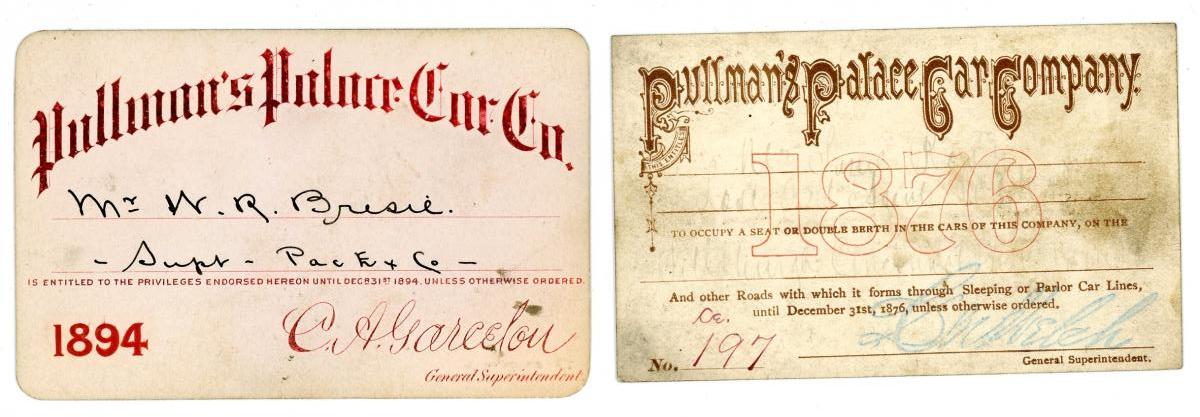 Pullman's Palace Car Co.
Mr W. R. Bresie.
- Supt - Pac Ex Co -
IS ENTITLED TO THE PRIVILEGES ENDORSED HEREON UNTIL DECR 31ST 1894. UNLESS OTHERWISE ORDERED.
1894
C. A. Garcelon
General Superintendent
Pullman's Palace Car Company.
THIS ENTITLES
1876
TO OCCUPY A SEAT OR DOUBLE BERTH IN THE CARS OF THIS COMPANY, ON THE
And other Roads with which it forms through Sleeping or Parlor Car Lines,
until December 31st, 1876, unless otherwise ordered.
No. 197
General Superintendent.